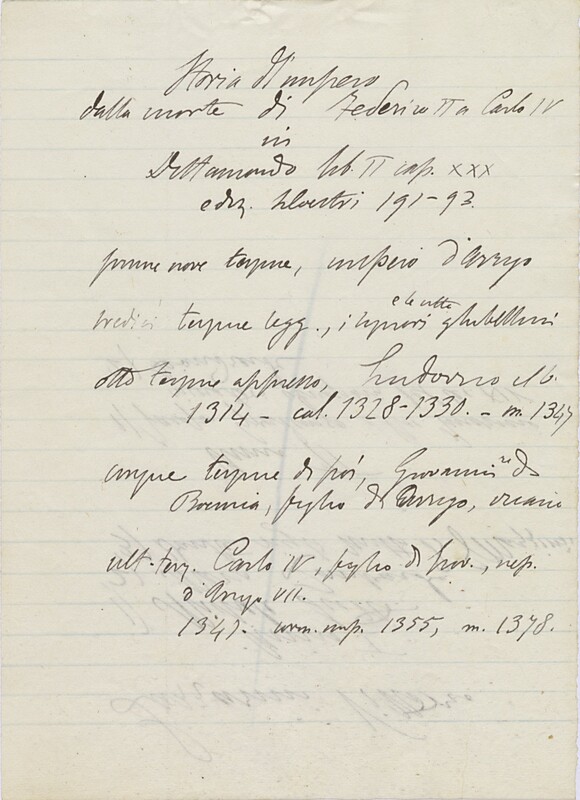 Storia d'Impero
dalla morte di Federico II a Carlo IV
in
Dittamondo lib. II cap. XXX
ediz. Silvestri 191-93.
prime nove terzine, impero d'Arrigo
tredici terzine legg., i signori e le città ghibellini
otto terzine appresso, Ludovico il b.
1314 - cal. 1328-1330. - m. 1347
cinque terzine di poi, Giovanni re di
Boemia, figlio di Arrigo, vicario
ult. terz. Carlo IV, figlio di Giov., nep.
d'Arrigo VII.
1347. coron. imp. 1355, m. 1378.